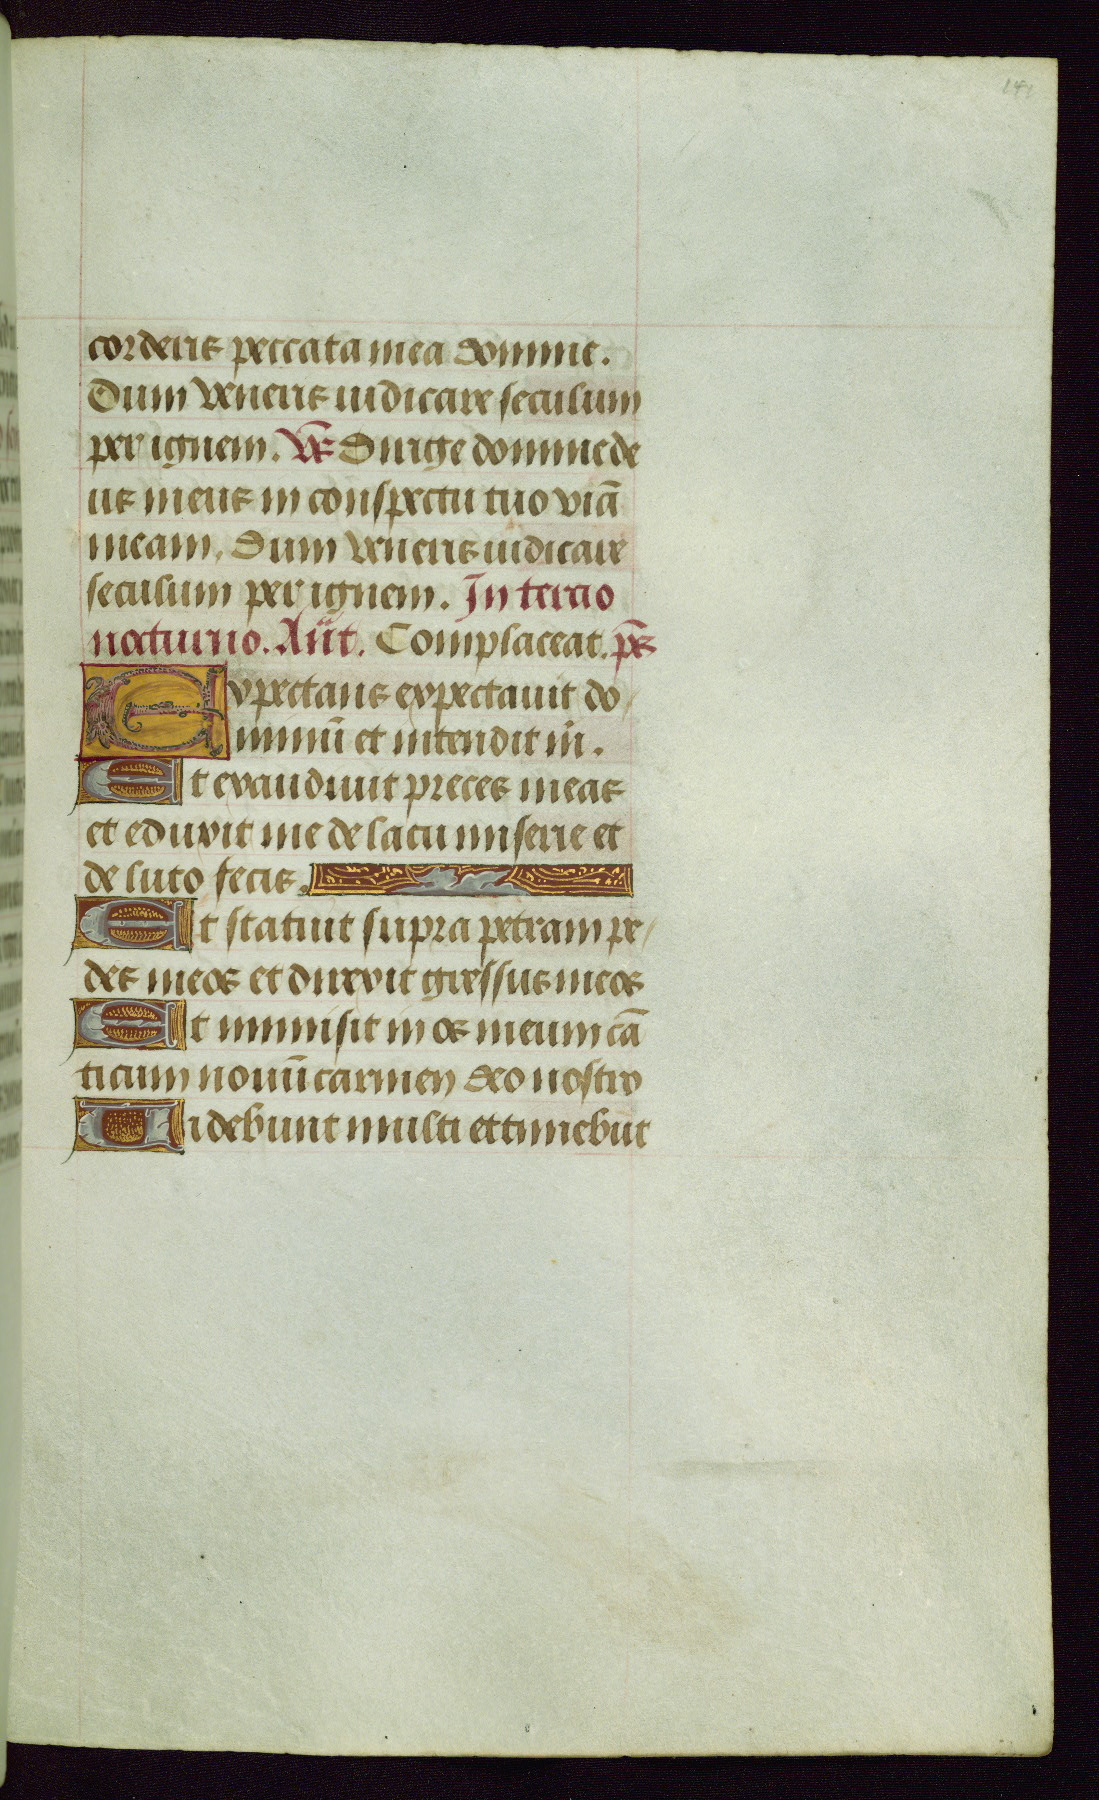 corderis peccata mea domine.
Dum veneris iudicare seculum
per ignem. V̄s Dirige domine de
us meus in conspectu tuo viā
meam. Dum veneris iudicare
seculum per ignem. In tercio
nocturno. Añt. Complaceat. p̄s
Expectans expectauit do
minū et intendit m̄.
Et exaudiuit preces meas
et eduxit me de lacu miserie et
de luto fecis.
Et statuit supra petram pe
des meos et direxit gressus meos
Et immisit in os meum cā
ticum nouū carmen deo nostro
Videbunt multi et timebūt